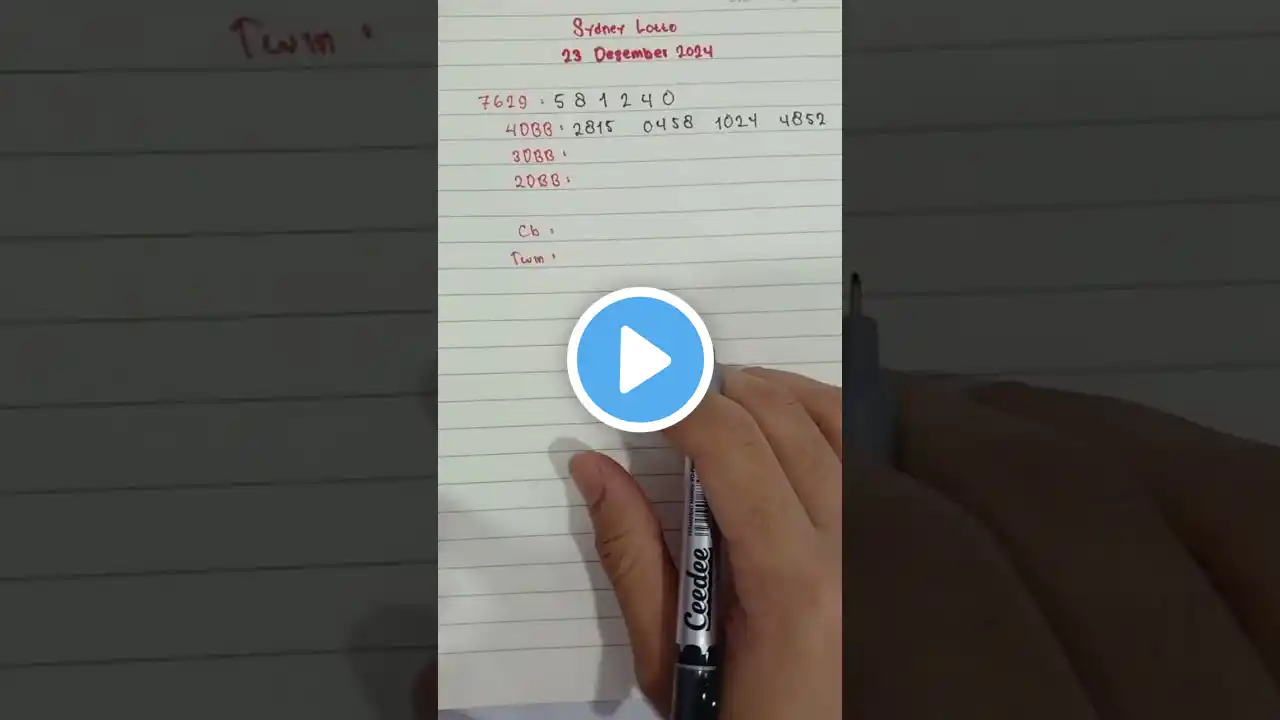 Sydney Lotto
23 Desember 2024
7629 : 5 8 1 2 4 0
4DBB : 2815 0458 1024 4852
3DBB :
2DBB :
Cb :
Twin :
Twin :
Ceedee